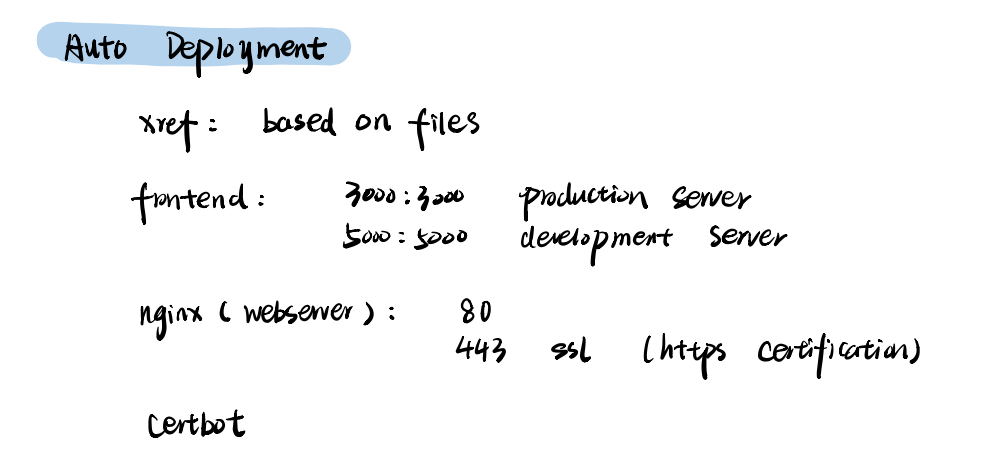 Auto Deployment
xref: based on files
frontend: 3000:3000 production server
5000:5000 development server
nginx (webserver): 80
443 ssl (https certification)
Certbot